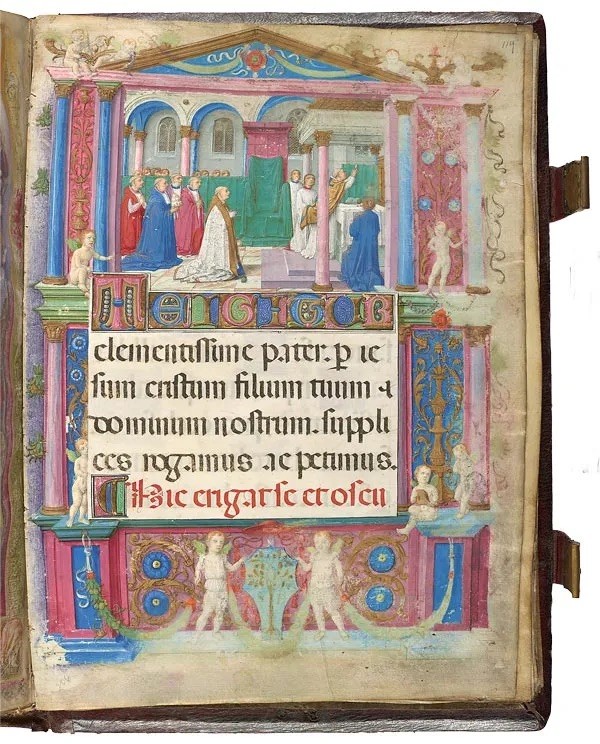 114
TE IGITUR
clementissime pater. ꝑ ie
sum cristum filium tuum ⁊
dominum nostrum. suppli
ces rogamus ac petimus.
Hic erigat se et oscu